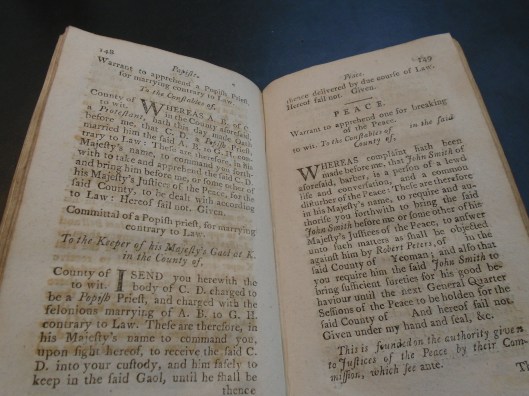 148
Popish.
Warrant to apprehend a Popish Priest,
for marrying contrary to Law.
To the Constables of,
County of
to wit.
WHEREAS A. B. of C.
in the County aforesaid,
a Protestant, hath this day made Oath
before me, that C. D. a Popish Priest,
married him the said A. B. to G. H. con-
trary to Law: These are therefore, in his
Majesty's name, to command you forth-
with to take and apprehend the said C. D.
and bring him before me, or some other of
his Majesty's Justices of the Peace, for the
said County, to be dealt with according
to Law: Hereof fail not. Given.
Committal of a Popish priest, for marrying
contrary to Law.
To the Keeper of his Majesty's Gaol at K.
in the County of,
County of
to wit.
I SEND you herewith the
body of C. D. charged to
be a Popish Priest, and charged with the
felonious marrying of A. B. to G. H.
contrary to Law. These are therefore, in
his Majesty's name to command you,
upon sight hereof, to receive the said C.
D. into your custody, and him safely to
keep in the said Gaol, until he shall be
thence
Peace.
149
thence delivered by due course of Law.
Hereof fail not. Given.
PEACE.
Warrant to apprehend one for breaking
of the Peace.
to wit. To the Constables of in the said
County of,
WHEREAS complaint hath been
made before me, that John Smith of
aforesaid, barber, is a person of a lewd
life and conversation, and a common
disturber of the Peace: These are therefore
in his Majesty's name, to require and au-
thorise you forthwith to bring the said
John Smith before me or some other of his
Majesty's Justices of the Peace, to answer
unto such matters as shall be objected
against him by Robert Peters, of in the
said County of Yeoman; and also that
you require him the said John Smith to
bring sufficient sureties for his good be-
haviour until the next General Quarter
Sessions of the Peace to be holden for the
said County of And hereof fail not.
Given under my hand and seal, &c.
This is founded on the authority given
to Justices of the Peace by their Com-
mission, which see ante.